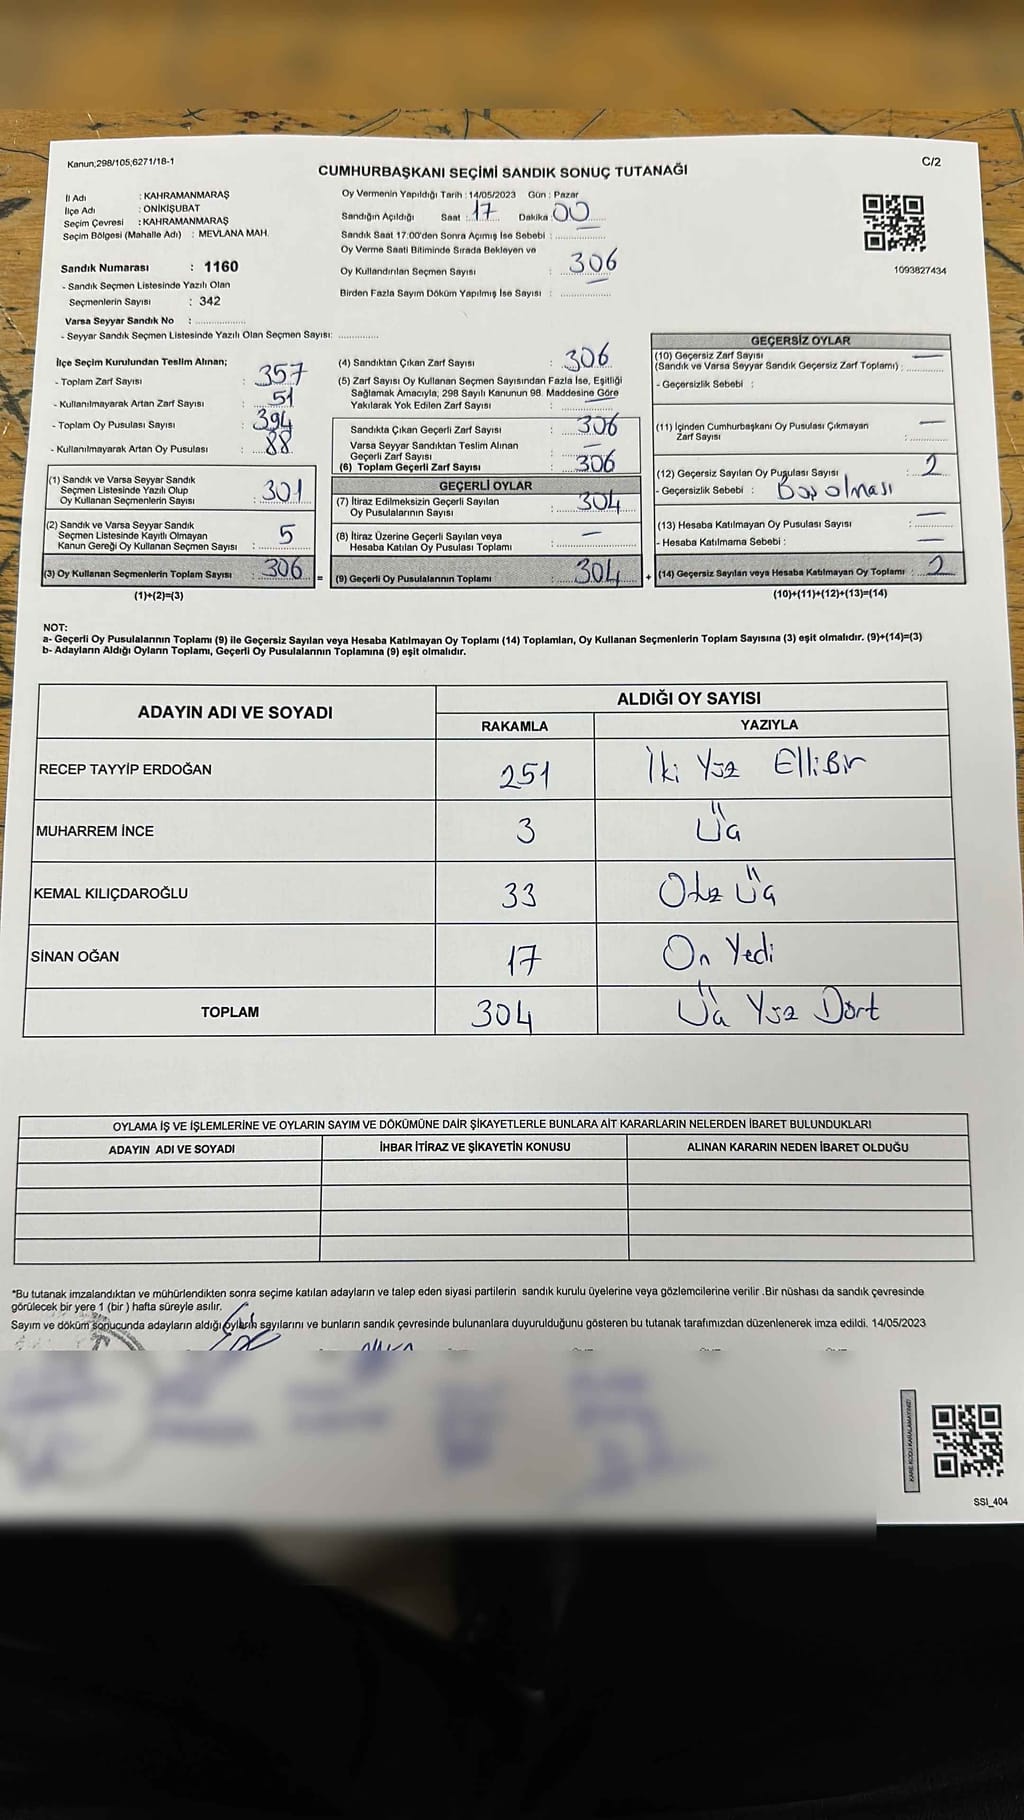 Kanun;298/105;6271/18-1
C/2
CUMHURBAŞKANI SEÇİMİ SANDIK SONUÇ TUTANAĞI
İl Adı : KAHRAMANMARAŞ
İlçe Adı : ONİKİŞUBAT
Seçim Çevresi : KAHRAMANMARAŞ
Seçim Bölgesi (Mahalle Adı) : MEVLANA MAH.
Sandık Numarası : 1160
- Sandık Seçmen Listesinde Yazılı Olan
Seçmenlerin Sayısı : 342
Varsa Seyyar Sandık No : ................
- Seyyar Sandık Seçmen Listesinde Yazılı Olan Seçmen Sayısı: ..............
Oy Vermenin Yapıldığı Tarih : 14/05/2023 Gün : Pazar
Sandığın Açıldığı Saat : 17 Dakika : 00
Sandık Saat 17:00'den Sonra Açımış İse Sebebi : ................
Oy Verme Saati Bitiminde Sırada Bekleyen ve
Oy Kullandırılan Seçmen Sayısı : 306
Birden Fazla Sayım Döküm Yapılmış İse Sayısı : ................
1093827434
İlçe Seçim Kurulundan Teslim Alınan;
- Toplam Zarf Sayısı : 357
- Kullanılmayarak Artan Zarf Sayısı : 51
- Toplam Oy Pusulası Sayısı : 394
- Kullanılmayarak Artan Oy Pusulası : 88
(1) Sandık ve Varsa Seyyar Sandık
Seçmen Listesinde Yazılı Olup
Oy Kullanan Seçmenlerin Sayısı : 301
(2) Sandık ve Varsa Seyyar Sandık
Seçmen Listesinde Kayıtlı Olmayan
Kanun Gereği Oy Kullanan Seçmen Sayısı : 5
(3) Oy Kullanan Seçmenlerin Toplam Sayısı : 306 =
(1)+(2)=(3)
(4) Sandıktan Çıkan Zarf Sayısı : 306
(5) Zarf Sayısı Oy Kullanan Seçmen Sayısından Fazla İse, Eşitliği
Sağlamak Amacıyla, 298 Sayılı Kanunun 98. Maddesine Göre
Yakılarak Yok Edilen Zarf Sayısı : —
Sandıkta Çıkan Geçerli Zarf Sayısı : 306
Varsa Seyyar Sandıktan Teslim Alınan
Geçerli Zarf Sayısı : —
(6) Toplam Geçerli Zarf Sayısı : 306
GEÇERLİ OYLAR
(7) İtiraz Edilmeksizin Geçerli Sayılan
Oy Pusulalarının Sayısı : 304
(8) İtiraz Üzerine Geçerli Sayılan veya
Hesaba Katılan Oy Pusulası Toplamı : —
(9) Geçerli Oy Pusulalarının Toplamı : 304 +
GEÇERSİZ OYLAR
(10) Geçersiz Zarf Sayısı —
(Sandık ve Varsa Seyyar Sandık Geçersiz Zarf Toplamı) : ............
- Geçersizlik Sebebi :
(11) İçinden Cumhurbaşkanı Oy Pusulası Çıkmayan
Zarf Sayısı : —
(12) Geçersiz Sayılan Oy Pusulası Sayısı : 2
- Geçersizlik Sebebi : Boş olması
(13) Hesaba Katılmayan Oy Pusulası Sayısı : —
- Hesaba Katılmama Sebebi : —
(14) Geçersiz Sayılan veya Hesaba Katılmayan Oy Toplamı : 2
(10)+(11)+(12)+(13)=(14)
NOT:
a- Geçerli Oy Pusulalarının Toplamı (9) ile Geçersiz Sayılan veya Hesaba Katılmayan Oy Toplamı (14) Toplamları, Oy Kullanan Seçmenlerin Toplam Sayısına (3) eşit olmalıdır. (9)+(14)=(3)
b- Adayların Aldığı Oyların Toplamı, Geçerli Oy Pusulalarının Toplamına (9) eşit olmalıdır.
ADAYIN ADI VE SOYADI ALDIĞI OY SAYISI
RAKAMLA YAZIYLA
RECEP TAYYİP ERDOĞAN 251 İki Yüz Elli Bir
MUHARREM İNCE 3 Üç
KEMAL KILIÇDAROĞLU 33 Otuz Üç
SİNAN OĞAN 17 On Yedi
TOPLAM 304 Üç Yüz Dört
OYLAMA İŞ VE İŞLEMLERİNE VE OYLARIN SAYIM VE DÖKÜMÜNE DAİR ŞİKAYETLERLE BUNLARA AİT KARARLARIN NELERDEN İBARET BULUNDUKLARI
ADAYIN ADI VE SOYADI İHBAR İTİRAZ VE ŞİKAYETİN KONUSU ALINAN KARARIN NEDEN İBARET OLDUĞU
*Bu tutanak imzalandıktan ve mühürlendikten sonra seçime katılan adayların ve talep eden siyasi partilerin sandık kurulu üyelerine veya gözlemcilerine verilir .Bir nüshası da sandık çevresinde
görülecek bir yere 1 (bir ) hafta süreyle asılır.
Sayım ve döküm sonucunda adayların aldığı oyların sayılarını ve bunların sandık çevresinde bulunanlara duyurulduğunu gösteren bu tutanak tarafımızdan düzenlenerek imza edildi. 14/05/2023
KARE KODU KARALAMAYINIZ!
SSİ_404